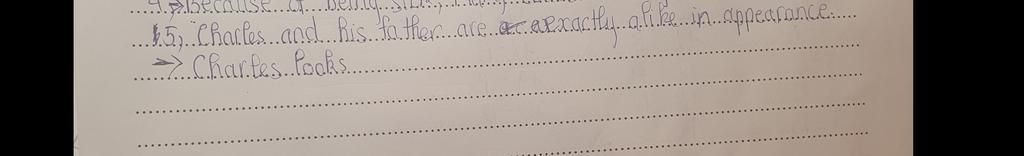 4, → Because of being
5, Charles and his father are exactly alike in appearance.
→ Charles looks